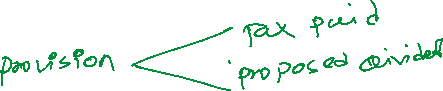 provision
Tax paid
proposed dividend